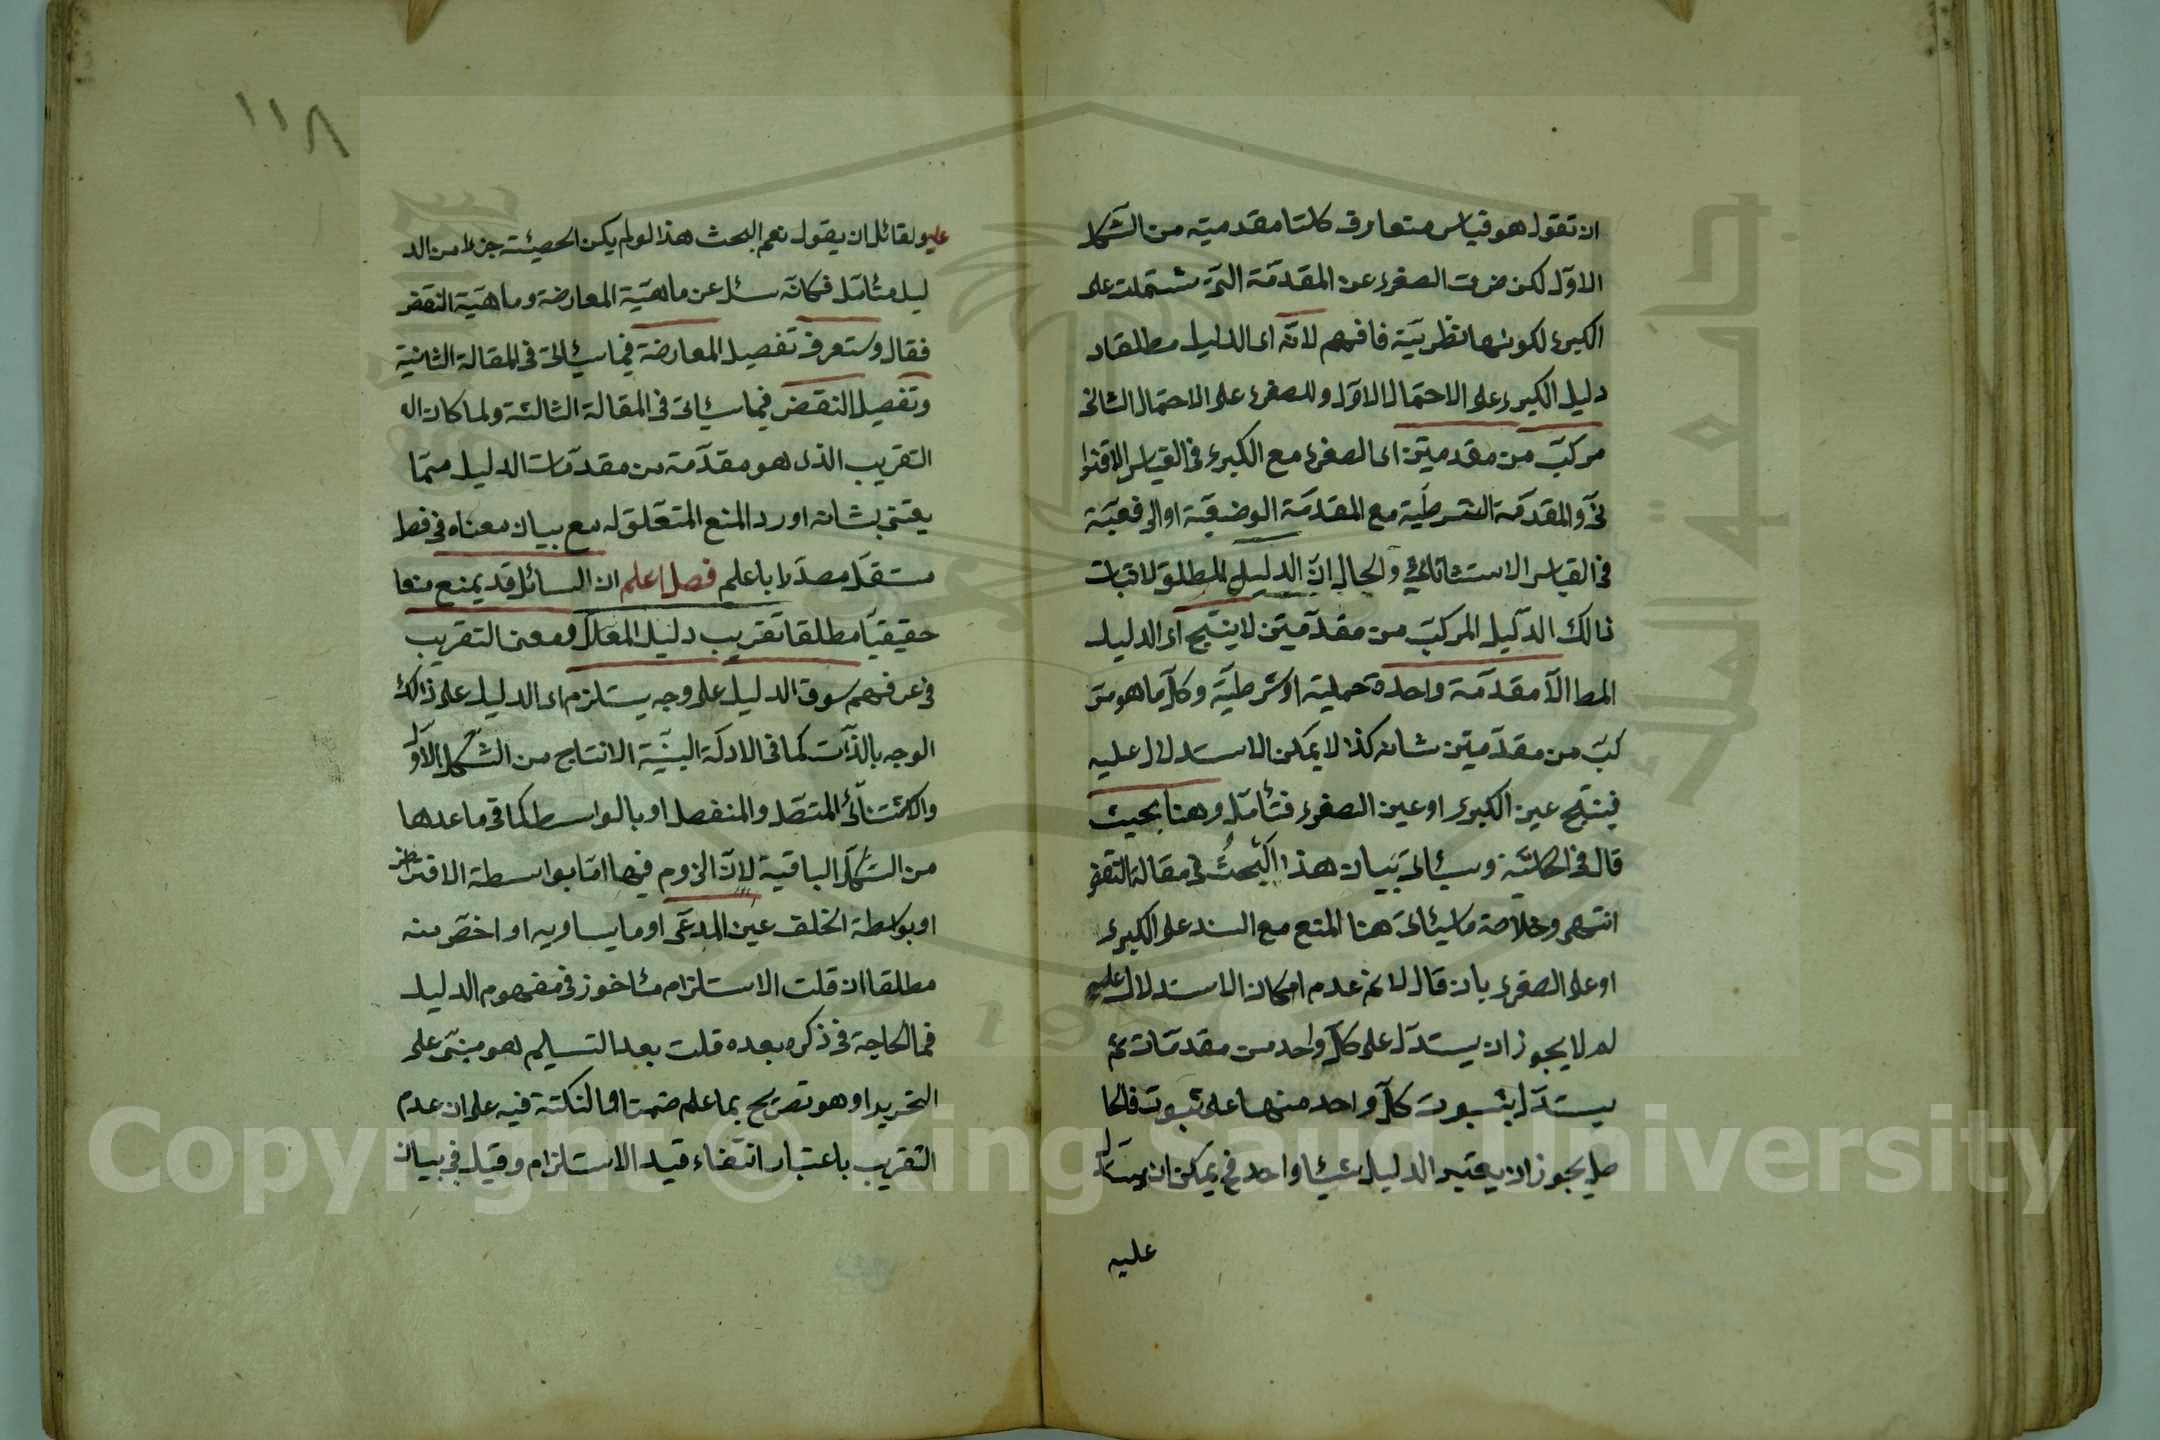 ان تقول هو قياس متعارف كلتا مقدميته من الشكل
الاول لكن ضربت الصغرى عن المقدمة التى شتملت على
الكبرى لكونها نظريية فافهم لانه اى الدليل مطلقا د
دليل الكبرى على الاحتمال الاول وللصغرى على الاحتمال الثانى
مركب من مقدمتين اى الصغرى مع الكبرى فى القياس الاقترا
نى والمقدمة الشرطية مع المقدمة الوضعية او الرفعية
فى القياس الاستثنائى والحال ان الدليل المطلق لاثبات
ذالك الدليل المركب من مقدمتين لا ينتج اى الدليل
المط الا مقدمة واحدة حملية او شرطية وكل ما هو مر
كب من مقدمتين شانه كذا لا يمكن الاستدلال عليه
فينتج عين الكبرى او عين الصغرى فتأمل وهنا بحيث
قال فى الحاشية وسيئاتى بيان هذا البحث فى مقالة النقض
انتهى وخلاصة ما سيئاتى هنا المنع مع السند على الكبرى
او على الصغرى بان قال لا نم عدم امكان الاستدلال عليه
لم لا يجوز ان يستدل على كل واحد من مقدمات ثم
يستدل بثبوت كل واحد منها على ثبوت فالحا
صل يجوز ان يعتبر الدليل شيئا واحد فح يمكن ان يستدل
عليه
١١٨
عليه ولقائل ان يقول نعم البحث هذا لو لم يكن الحصيئة جزلا من الد
ليل فتأمل فكانه سئل عن ماهية المعارضة وماهية النقض
فقال وستعرف تفصيل المعارضة فيما سيئاتى فى المقالة الثانية
وتفصيل النقض فيما سيئاتى فى المقالة الثالثة ولما كان
التقريب الذى هو مقدمة من مقدمات الدليل مما
يعتنى بشانه اورد المنع المتعلق له مع بيان معناه فى فصل
مستقل مصدرا باعلم فصل اعلم ان السائل قد يمنع منعا
حقيقيا مطلقا تقريب دليل المعلل ومعنى التقريب
فى عرفهم سوق الدليل على وجه يستلزم اى الدليل على ذالك
الوجه بالذات كما فى الادلة البينية الانتاج من الشكل الاول
والاستثنائى المتصل والمنفصل او بالواسطة كما فى ما عداها
من الشكل الباقية لان الزوم فيها اما بواسطة الاقتراض
او بواسطة الخلف عين المدعى او ما يساويه او اخص منه
مطلقا ان قلت الاستلزام مئاخوز فى مفهوم الدليل
فما الحاجة فى ذكره بعده قلت بعد التسليم هو مبنى على
التجريد او هو تصريح بما علم ضمنا والنكتة فيه على ان عدم
التقريب باعتبار انتفاء قيد الاستلزام وقيل فى بيان
Copyright © King Saud University
جامعة الملك